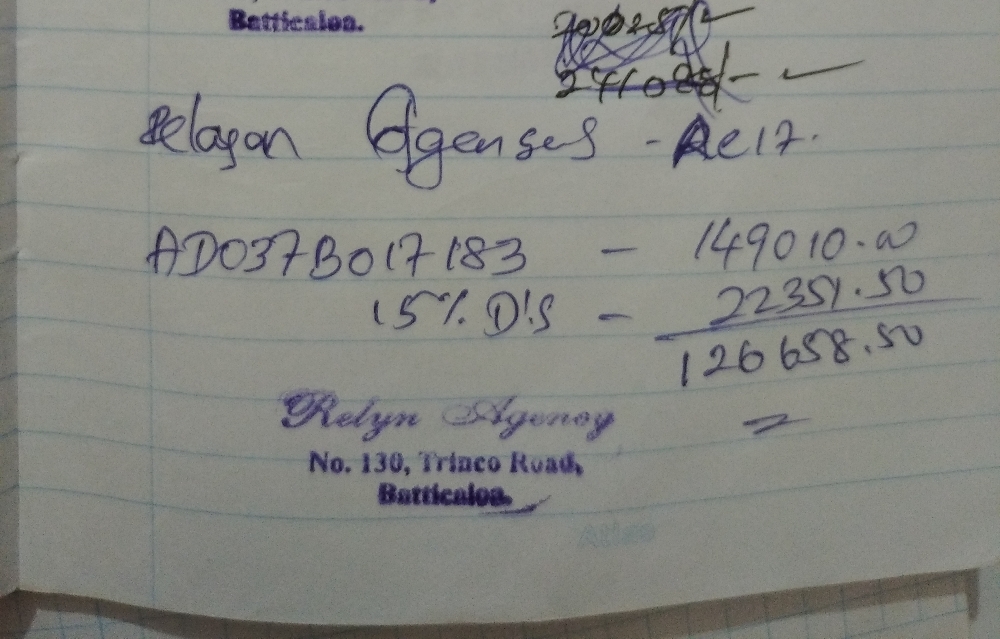 Batticaloa.
241000/-
Relagan Agenses - Ae 17.
AD037B017183 - 149010.00
15% D'S - 22351.50
126658.50
=
Relyn Agency
No. 130, Trinco Road,
Batticaloa.
Atlas